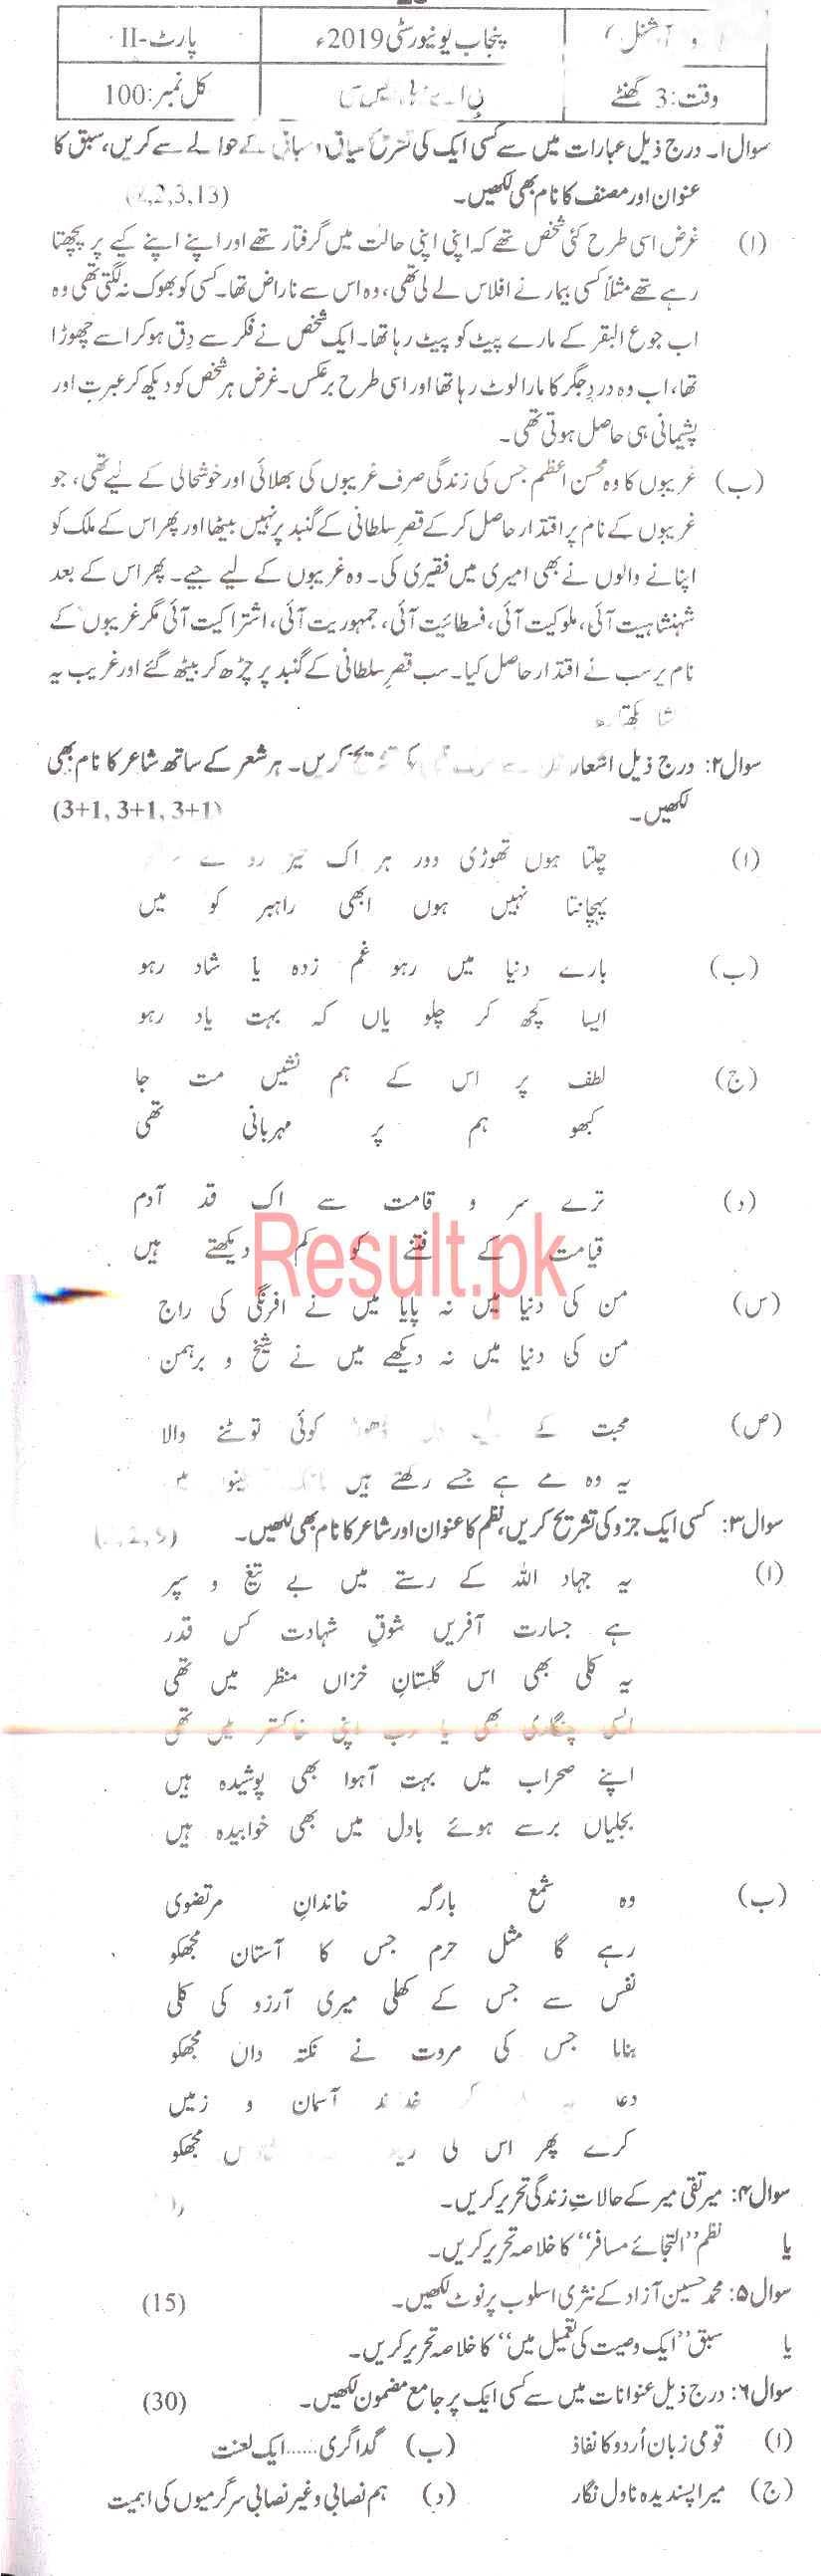 آپشنل
پنجاب یونیورسٹی 2019ء
پارٹ-II
وقت: 3 گھنٹے
کل نمبر: 100
سوال ا۔ درج ذیل عبارات میں سے کسی ایک کی تشریح سیاق و سباق کے حوالے سے کریں، سبق کا
عنوان اور مصنف کا نام بھی لکھیں۔ (2,2,3,13)
(ا) غرض اسی طرح کئی شخص تھے کہ اپنی اپنی حالت میں گرفتار تھے اور اپنے اپنے کیے پر پچھتا
رہے تھے مثلاً کسی بیمار نے افلاس لے لی تھی، وہ اس سے ناراض تھا۔ کسی کو بھوک نہ لگتی تھی وہ
اب جوع البقر کے مارے پیٹ کو پیٹ رہا تھا۔ ایک شخص نے فکر سے دِق ہو کر اسے چھوڑا
تھا، اب وہ دردِ جگر کا مارا لوٹ رہا تھا اور اسی طرح برعکس۔ غرض ہر شخص کو دیکھ کر عبرت اور
پشیمانی ہی حاصل ہوتی تھی۔
(ب) غریبوں کا وہ محسن اعظم جس کی زندگی صرف غریبوں کی بھلائی اور خوشحالی کے لیے تھی، جو
غریبوں کے نام پر اقتدار حاصل کر کے قصرِ سلطانی کے گنبد پر نہیں بیٹھا اور پھر اس کے ملک کو
اپنانے والوں نے بھی امیری میں فقیری کی۔ وہ غریبوں کے لیے جیے۔ پھر اس کے بعد
شہنشاہیت آئی، ملوکیت آئی، فسطائیت آئی، جمہوریت آئی، اشتراکیت آئی مگر غریبوں کے
نام پر سب نے اقتدار حاصل کیا۔ سب قصرِ سلطانی کے گنبد پر چڑھ کر بیٹھ گئے اور غریب یہ
سوال ۲: درج ذیل اشعار تشریح کریں۔ ہر شعر کے ساتھ شاعر کا نام بھی
لکھیں۔ (3+1, 3+1, 3+1)
(ا) چلتا ہوں تھوڑی دور ہر اک تیز رو کے
پہچانتا نہیں ہوں ابھی راہبر کو میں
(ب) بارے دنیا میں رہو غم زدہ یا شاد رہو
ایسا کچھ کر چلو یاں کہ بہت یاد رہو
(ج) لطف پر اس کے ہم نشیں مت جا
کبھو ہم پر مہربانی تھی
(د) ترے سر و قامت سے اک قد آدم
قیامت کے فتنے کو کم دیکھتے ہیں
Result.pk
(س) من کی دنیا میں نہ پایا میں نے افرنگی کی راج
من کی دنیا میں نہ دیکھے میں نے شیخ و برہمن
(ص) محبت کے دل کوئی ٹوٹنے والا
یہ وہ مے ہے جسے رکھتے ہیں
سوال ۳: کسی ایک جزو کی تشریح کریں، نظم کا عنوان اور شاعر کا نام بھی لکھیں۔
(ا) یہ جہاد اللہ کے رستے میں بے تیغ و سپر
ہے جسارت آفریں شوقِ شہادت کس قدر
یہ کلی بھی اس گلستانِ خزاں منظر میں تھی
ایسی چنگاری بھی یا رب اپنی خاکستر میں تھی
اپنے صحراب میں بہت آہوا بھی پوشیدہ ہیں
بجلیاں برسے ہوئے بادل میں بھی خوابیدہ ہیں
(ب) وہ شمع بارگہ خاندانِ مرتضوی
رہے گا مثل حرم جس کا آستان مجھکو
نفس سے جس کے کھلی میری آرزو کی کلی
بنایا جس کی مروت نے نکتہ داں مجھکو
دعا آسمان و زمیں
کرے پھر اس کی مجھکو
سوال ۴: میر تقی میر کے حالاتِ زندگی تحریر کریں۔
یا نظم "التجائے مسافر" کا خلاصہ تحریر کریں۔
سوال ۵: محمد حسین آزاد کے نثری اسلوب پر نوٹ لکھیں۔ (15)
یا سبق "ایک وصیت کی تعمیل میں" کا خلاصہ تحریر کریں۔
سوال ۶: درج ذیل عنوانات میں سے کسی ایک پر جامع مضمون لکھیں۔ (30)
(ا) قومی زبان اُردو کا نفاذ (ب) گداگری......ایک لعنت
(ج) میرا پسندیدہ ناول نگار (د) ہم نصابی و غیر نصابی سرگرمیوں کی اہمیت